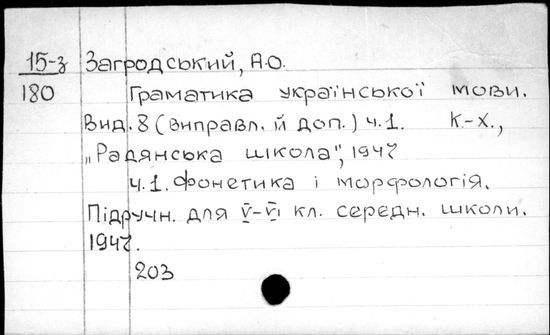 15-з Загродський, А.О.
180 Граматика української мови.
Вид. 8 (виправл. й доп.) ч.1. К.-Х.,
„Радянська школа", 1947
ч.1. Фонетика і морфологія.
Підручн. для V-VI кл. середн. школи.
1947.
203